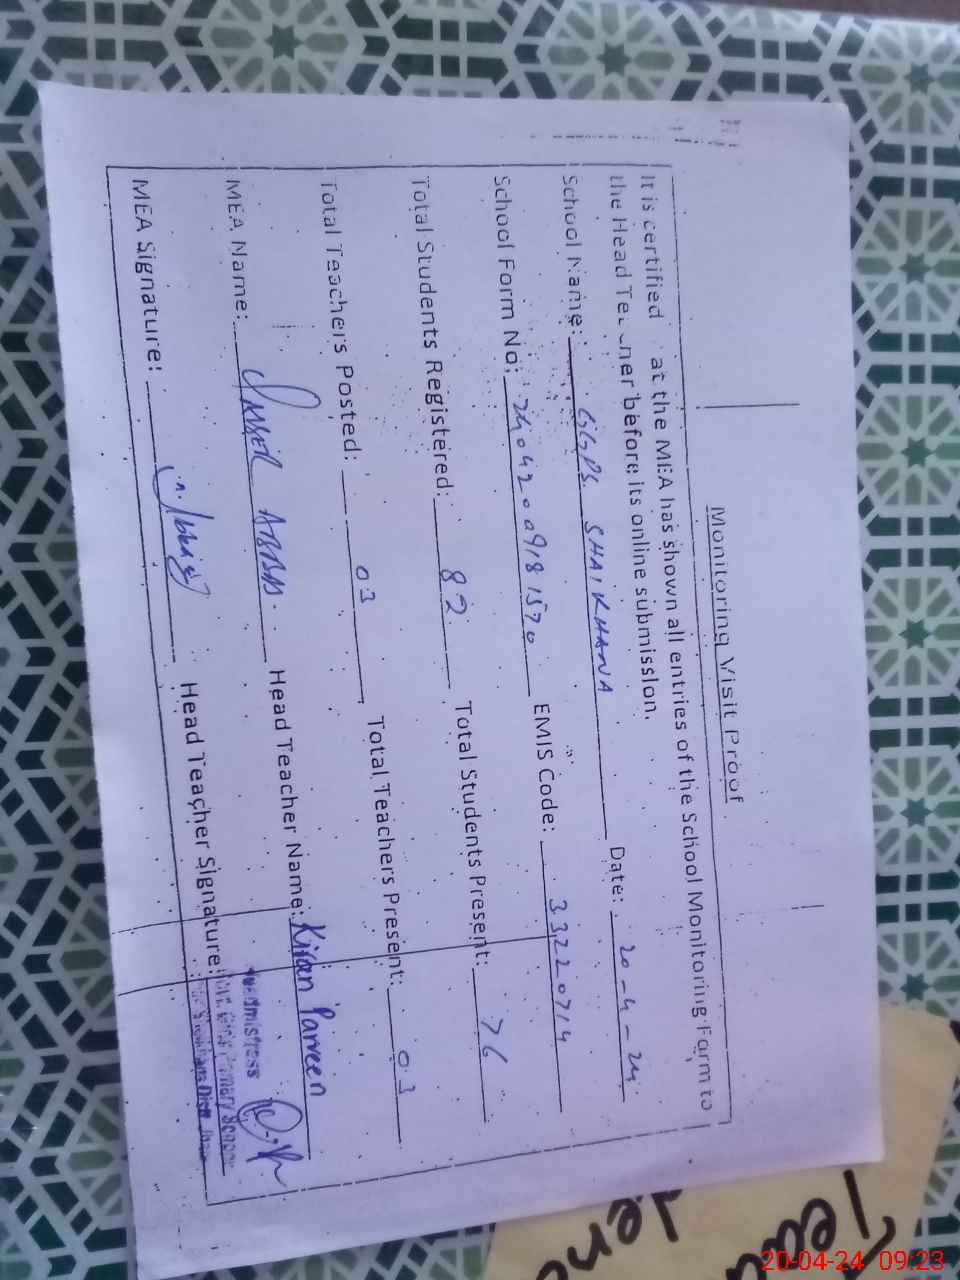 Monitoring Visit Proof
It is certified at the MEA has shown all entries of the School Monitoring Form to
the Head Teacher before its online submission.
School Name: GGPS SHAIKHANA Date: 20-4-24
School Form No: 24042009181570 EMIS Code: 33220714
Total Students Registered: 82 Total Students Present: 76
Total Teachers Posted: 03 Total Teachers Present: 03
MEA Name: ABBAS Head Teacher Name: Kiran Parveen
MEA Signature: Head Teacher Signature:
Headmistress
Primary School
20-04-24 09:23